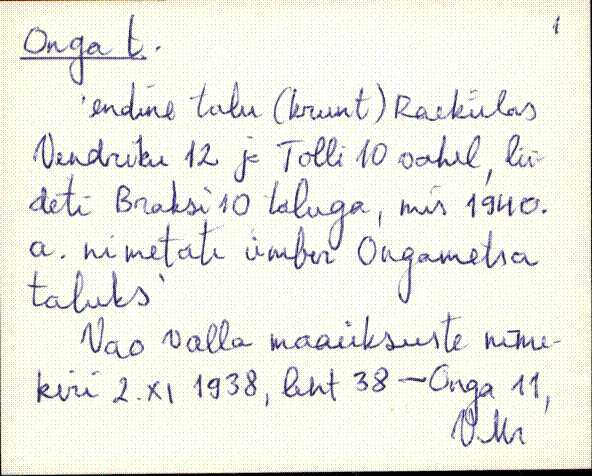 Onga t. 1
'endine talu (krunt) Raekülas
Vendriku 12 ja Tolli 10 vahel, lii-
deti Braksi 10 taluga, mis 1940.
a. nimetati ümber Ongametsa
taluks'
Vao valla maaüksuste nime-
kiri 2. XI 1938, leht 38 — Onga 11,